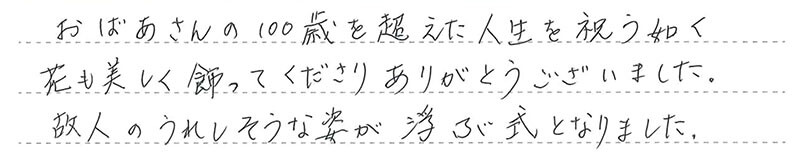 おばあさんの100歳を超えた人生を祝う如く
花も美しく飾ってくださりありがとうございました。
故人のうれしそうな姿が浮ぶ式となりました。